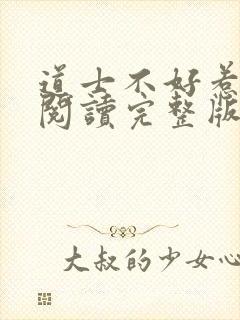 道士不好惹
閱讀完整版
大叔的少女心